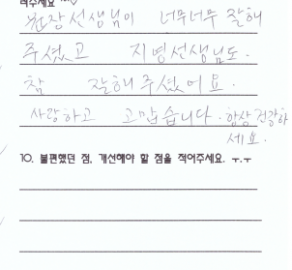 적주세요
원장선생님이 너무너무 잘해
주셨고 지영선생님도.
참 잘해주셨어요.
사랑하고 고맙습니다. 항상 건강하
세요.
10. 불편했던 점, 개선해야 할 점을 적어주세요. ㅜ.ㅜ